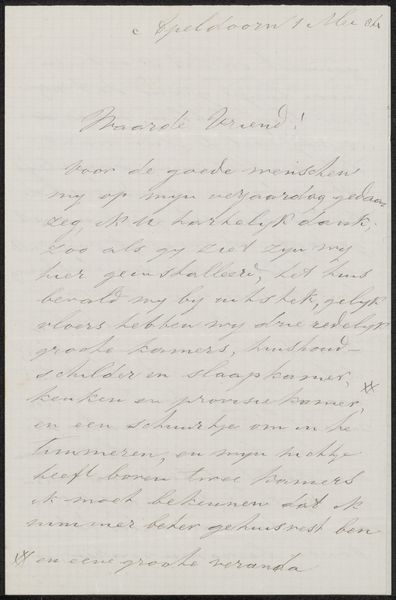 Apeldoorn 1 Mei 84
Waarde Vriend!
voor de goede menschen
my op myn verjaardag gedaan
zeg ik U hartelyk dank,
zoo als gy ziet zyn wy
hier geinstalleerd, het huis
bevald my by uitstek, gelyk
vloers hebben wy drie redelyk
groote kamers, huishoud-
schilder en slaapkamer, ##
keuken en provisiekamer,
en een schuurtje om in te
timmeren, en myn nichtje
heeft boven twee kamers
ik moet bekennen dat ik
nimmer beter gehuisvest ben
## en eene groote veranda